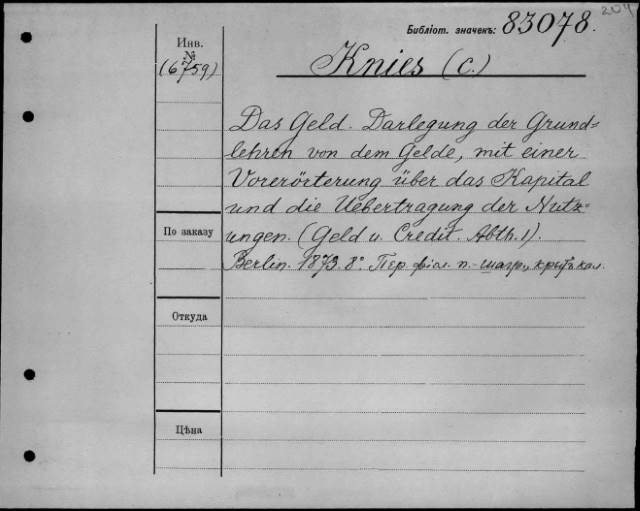 204
Библіот. значекъ: 83078.
Инв.
№
(6759)
Knies (C.)
Das Geld. Darlegung der Grund=
lehren von dem Gelde, mit einer
Vorerörterung über das Kapital
und die Uebertragung der Nutz=
По заказу
ungen. (Geld u. Credit. Abth. 1).
Berlin. 1873. 8°. Пер. фіол. п.-шагр.,
Откуда
Цѣна